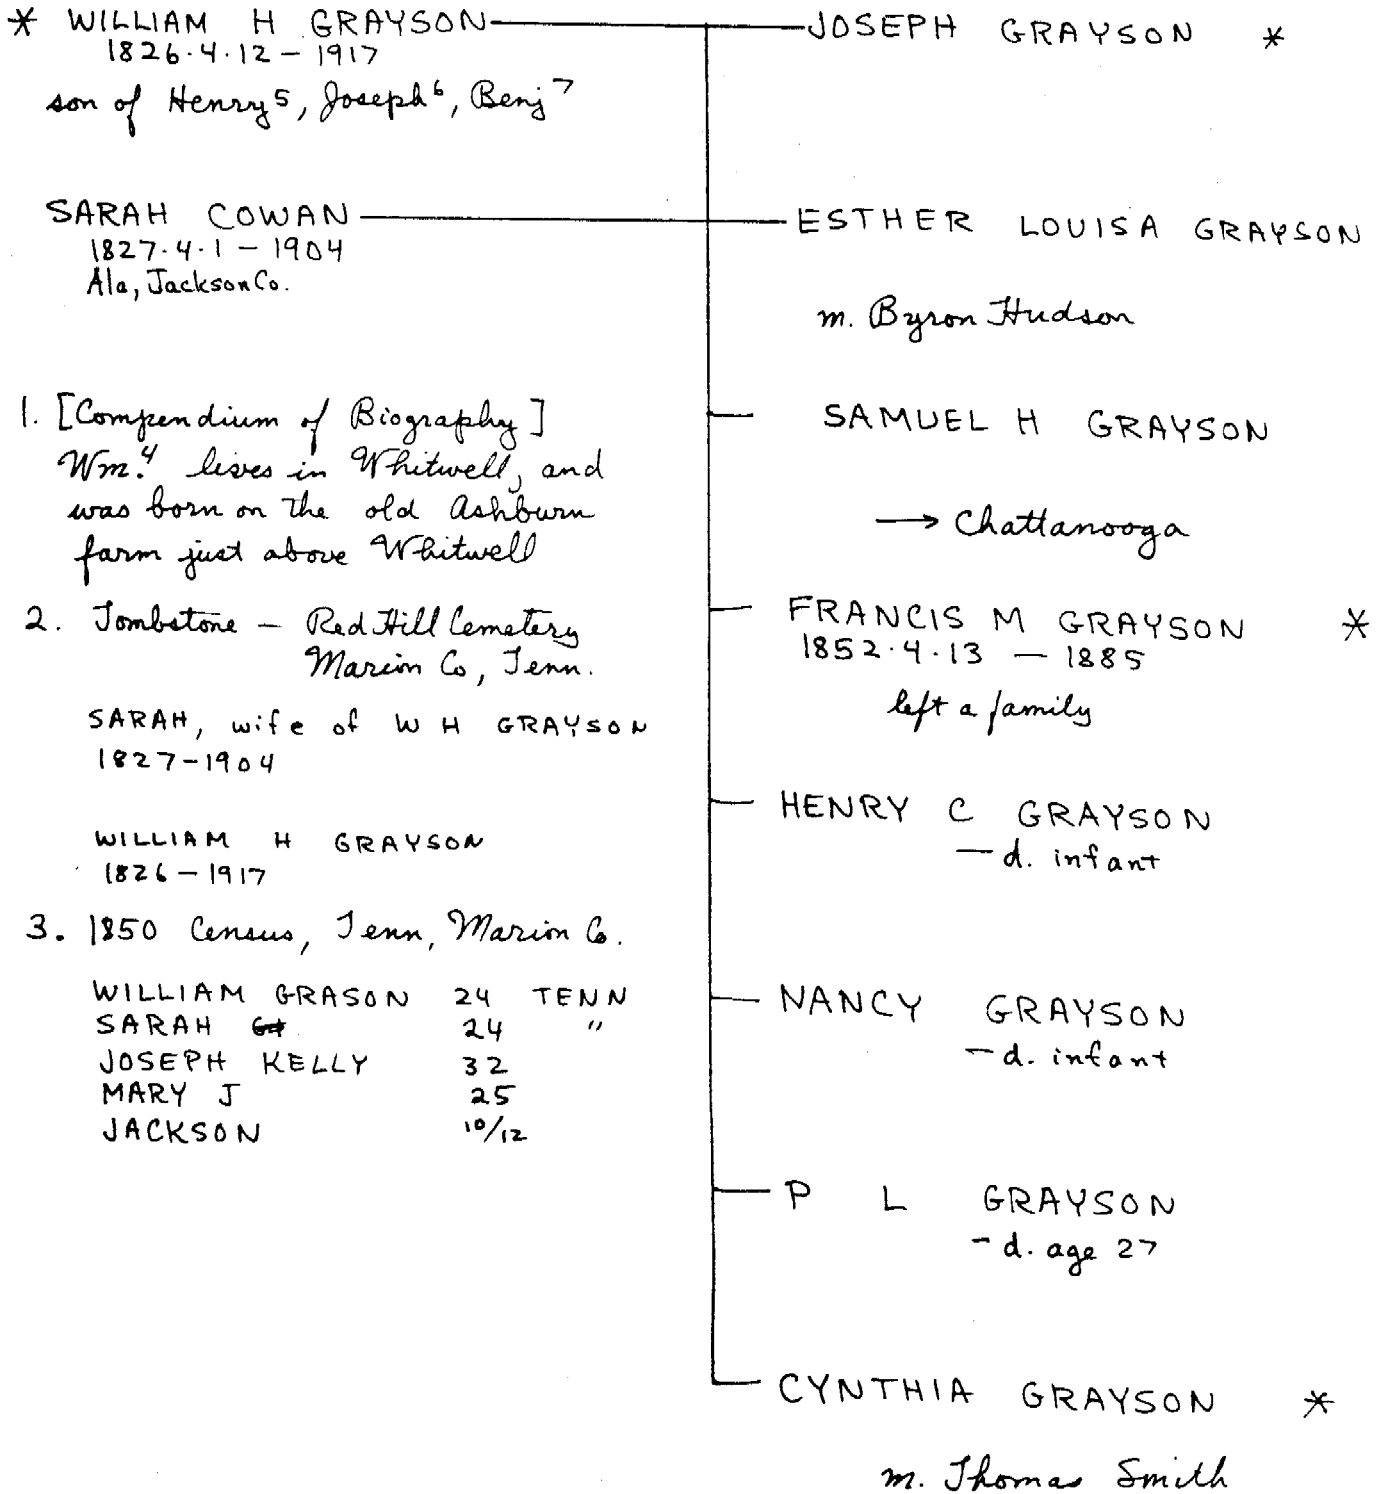 * WILLIAM H GRAYSON
1826.4.12 – 1917
son of Henry⁵, Joseph⁶, Benj⁷
SARAH COWAN
1827.4.1 – 1904
Ala, Jackson Co.
1. [Compendium of Biography]
Wm.⁴ lives in Whitwell, and
was born on the old Ashburn
farm just above Whitwell
2. Tombstone – Red Hill Cemetery
Marion Co, Tenn.
SARAH, wife of W H GRAYSON
1827-1904
WILLIAM H GRAYSON
1826 – 1917
3. 1850 Census, Tenn, Marion Co.
WILLIAM GRASON 24 TENN
SARAH 24 "
JOSEPH KELLY 32
MARY J 25
JACKSON 10/12
JOSEPH GRAYSON *
ESTHER LOUISA GRAYSON
m. Byron Hudson
SAMUEL H GRAYSON
→ Chattanooga
FRANCIS M GRAYSON *
1852.4.13 – 1885
left a family
HENRY C GRAYSON
– d. infant
NANCY GRAYSON
– d. infant
P L GRAYSON
- d. age 27
CYNTHIA GRAYSON *
m. Thomas Smith